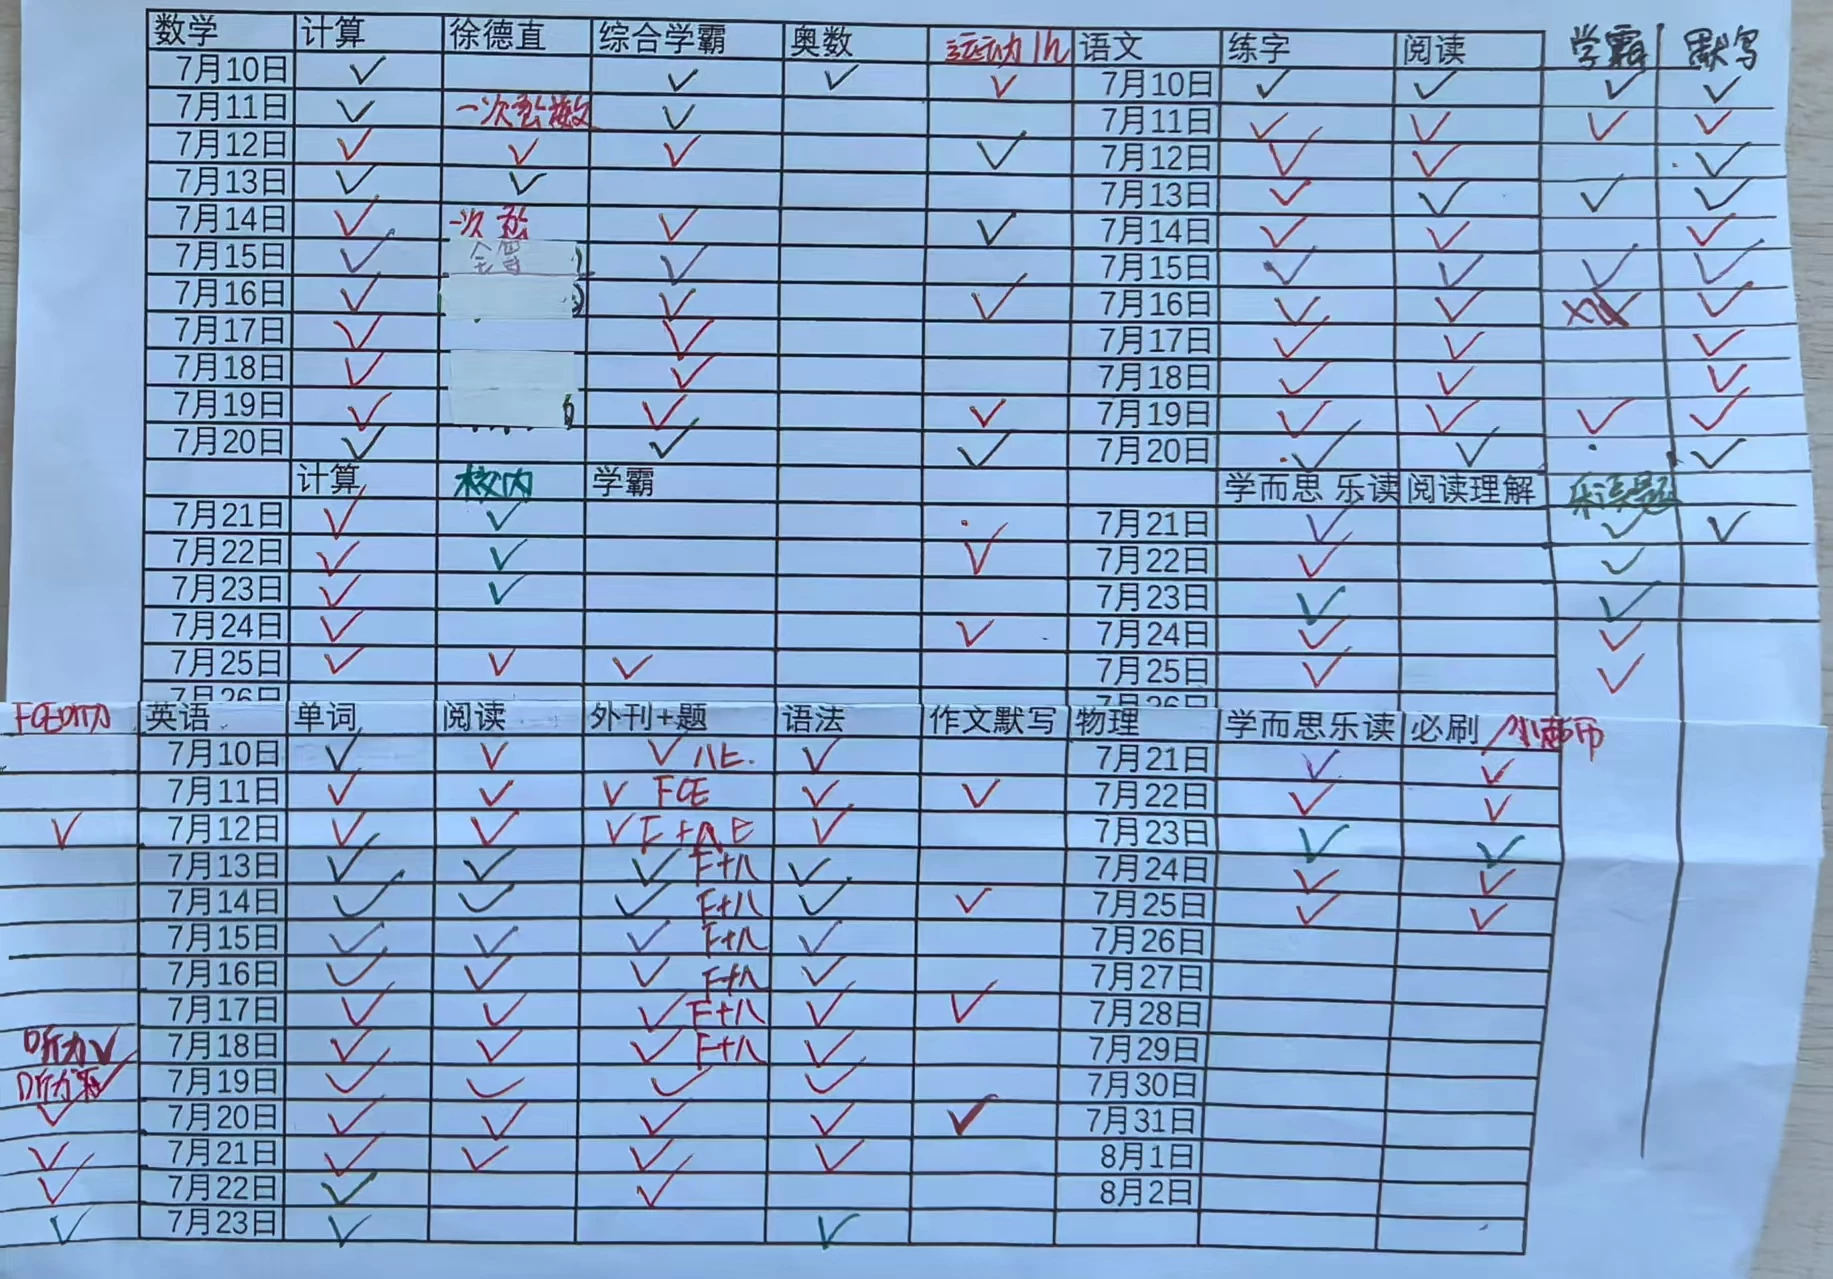 数学 计算 徐德直 综合学霸 奥数 运动1h 语文 练字 阅读 学霸 默写
7月10日 ✓ ✓ ✓ ✓ 7月10日 ✓ ✓ ✓ ✓
7月11日 ✓ 一次函数 ✓ 7月11日 ✓ ✓ ✓ ✓
7月12日 ✓ ✓ ✓ ✓ 7月12日 ✓ ✓ ✓
7月13日 ✓ ✓ 7月13日 ✓ ✓ ✓ ✓
7月14日 ✓ 一次函 ✓ ✓ 7月14日 ✓ ✓ ✓
7月15日 ✓ 全等 ✓ 7月15日 ✓ ✓ ✓ ✓
7月16日 ✓ ✓ ✓ 7月16日 ✓ ✓ ✓
7月17日 ✓ ✓ 7月17日 ✓ ✓ ✓
7月18日 ✓ ✓ 7月18日 ✓ ✓ ✓
7月19日 ✓ ✓ ✓ 7月19日 ✓ ✓ ✓ ✓
7月20日 ✓ ✓ ✓ 7月20日 ✓ ✓ ✓
计算 校内 学霸 学而思 乐读 阅读理解 乐读题
7月21日 ✓ ✓ 7月21日 ✓ ✓ ✓
7月22日 ✓ ✓ ✓ 7月22日 ✓ ✓
7月23日 ✓ ✓ 7月23日 ✓ ✓
7月24日 ✓ ✓ 7月24日 ✓ ✓
7月25日 ✓ ✓ ✓ 7月25日 ✓ ✓
7月26日 7月26日
FCE听力 英语 单词 阅读 外刊+题 语法 作文默写 物理 学而思乐读 必刷
7月10日 ✓ ✓ ✓ 八E. ✓ 7月21日 ✓ ✓
7月11日 ✓ ✓ ✓ FCE ✓ ✓ 7月22日 ✓ ✓
✓ 7月12日 ✓ ✓ ✓ F+八E ✓ 7月23日 ✓ ✓
7月13日 ✓ ✓ ✓ F+八 ✓ 7月24日 ✓ ✓
7月14日 ✓ ✓ ✓ F+八 ✓ ✓ 7月25日 ✓ ✓
7月15日 ✓ ✓ ✓ F+八 ✓ 7月26日
7月16日 ✓ ✓ ✓ F+八 ✓ 7月27日
7月17日 ✓ ✓ ✓ F+八 ✓ ✓ 7月28日
听力✓ 7月18日 ✓ ✓ ✓ F+八 ✓ 7月29日
听力 ✓ 7月19日 ✓ ✓ ✓ ✓ 7月30日
✓ 7月20日 ✓ ✓ ✓ ✓ ✓ 7月31日
✓ 7月21日 ✓ ✓ ✓ ✓ 8月1日
✓ 7月22日 ✓ ✓ 8月2日
✓ 7月23日 ✓ ✓